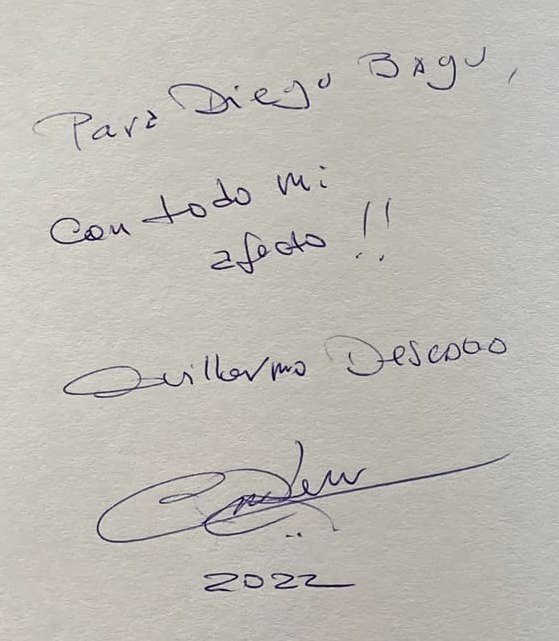 Para Diego Bagu,
Con todo mi
afecto !!
Guillermo
2022